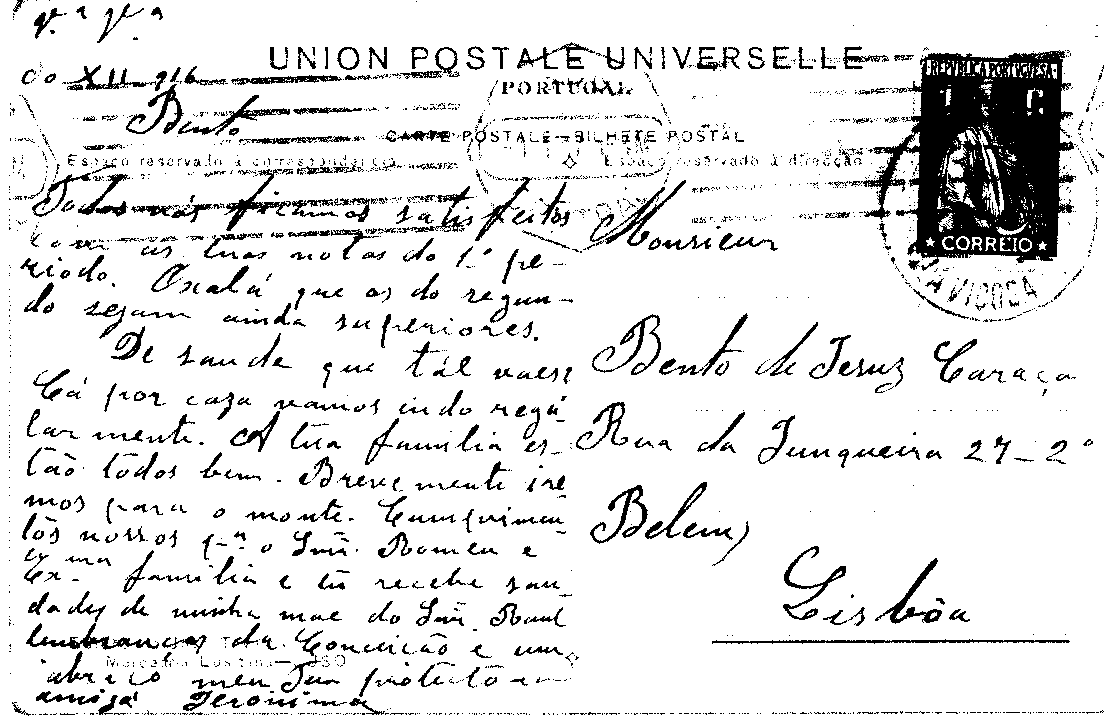 UNION POSTALE UNIVERSELLE
PORTUGAL
CARTE POSTALE - BILHETE POSTAL
Espaço reservado à correspondencia
Espaço reservado à direcção
REPUBLICA PORTUGUESA
1 C
CORREIO
VIÇOSA
XII 916
Bento
Todos nós ficamos satisfeitos
com as tuas notas do 1º pe-
riodo. Oxalá que as do segun-
do sejam ainda superiores.
De saude que tál vaes?
Cá por casa vamos indo regu-
larmente. A tua familia es-
tão todos bem. Brevemente ire
mos para o monte. Cumprimen-
tos nossos pª o Snr. Romeu e
Exma familia e tu recebe sau-
dades de minha mãe do Snr. Raul
lembranças da Conceição e um
abraço meu Tua protectora
amiga Jeronima
Monsieur
Bento de Jesus Caraça
Rua da Junqueira 27-2º
Belem,
Lisbôa